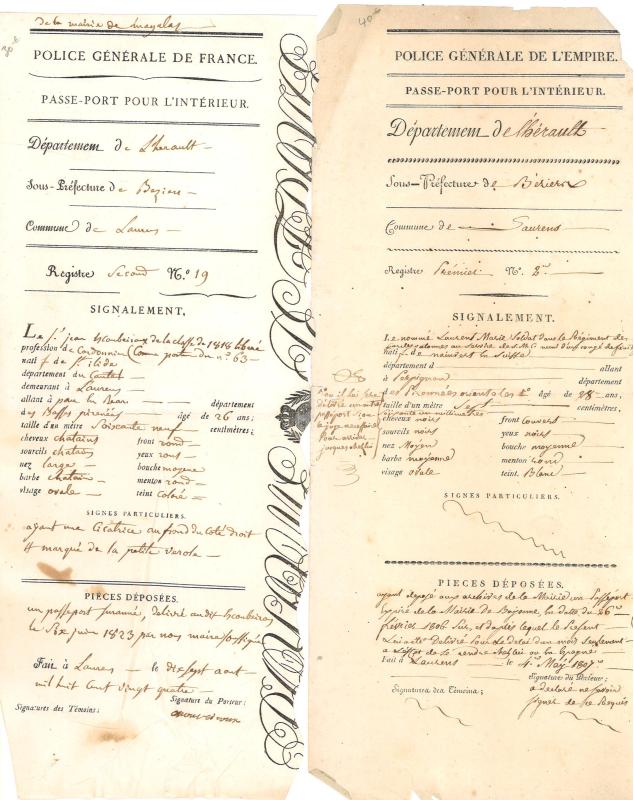 de la mairie de magalas
30 €
POLICE GÉNÉRALE DE FRANCE.
PASSE-PORT POUR L'INTÉRIEUR.
Département de l'herault
Sous-Préfecture de Beziers
Commune de Laurens
Registre Second N.º 19
SIGNALEMENT.
Le Sr. jean de la classe de 1818 libéré
profession de Cordonnier (Comme porte du nº 63
natif de St. 
département du Cantal
demeurant à Laurens
allant à pau le Bearn département
des Basses pirénées âgé de 26 ans;
taille d'un mètre Soixante neuf centimètres;
cheveux chatains front rond
sourcils chatains yeux roux
nez large bouche moyene
barbe chatain menton rond
visage ovale teint coloré
SIGNES PARTICULIERS.
ayant une Cicatrice au front du coté droit
et marqué de la petite verole
PIECES DÉPOSÉES.
un passeport suranné, délivré audit
le Six juin 1823 par nous maire soussigné
Fait à Laurens le dix sept aout
mil huit Cent vingt quatre
Signature du Porteur:
Signatures des Témoins:
40 €
POLICE GÉNÉRALE DE L'EMPIRE.
PASSE-PORT POUR L'INTÉRIEUR.
Département de l'hérault
Sous-Préfecture de Béziers
Commune de Laurens
Registre Prémier N.º 2
SIGNALEMENT.
Le nommé Laurens Marie Soldat dans le Régiment de
natif de la Suisse
département d allant
à Perpignan département
des Pirennées orientales âgé de 28 ans;
taille d'un mètre centimètres;
Soixante un millimetres
cheveux noirs front couvert
sourcils noirs yeux noirs
nez Moyen bouche moyenne
barbe moyenne menton rond
visage ovale teint Blanc
SIGNES PARTICULIERS.
PIECES DÉPOSÉES.
ayant déposé aux archives de la Mairie un Passeport
de la Mairie de Bayonne, la datte du 26
février 1806 Sur, et d'après lequel le présent
délivré pour le délai d'un mois Seulement
à l'effet de se rendre
Fait à Laurens le 4 May 1807
Signature du Porteur:
Signatures des Témoins:
a déclaré ne savoir
signer de ce Requis